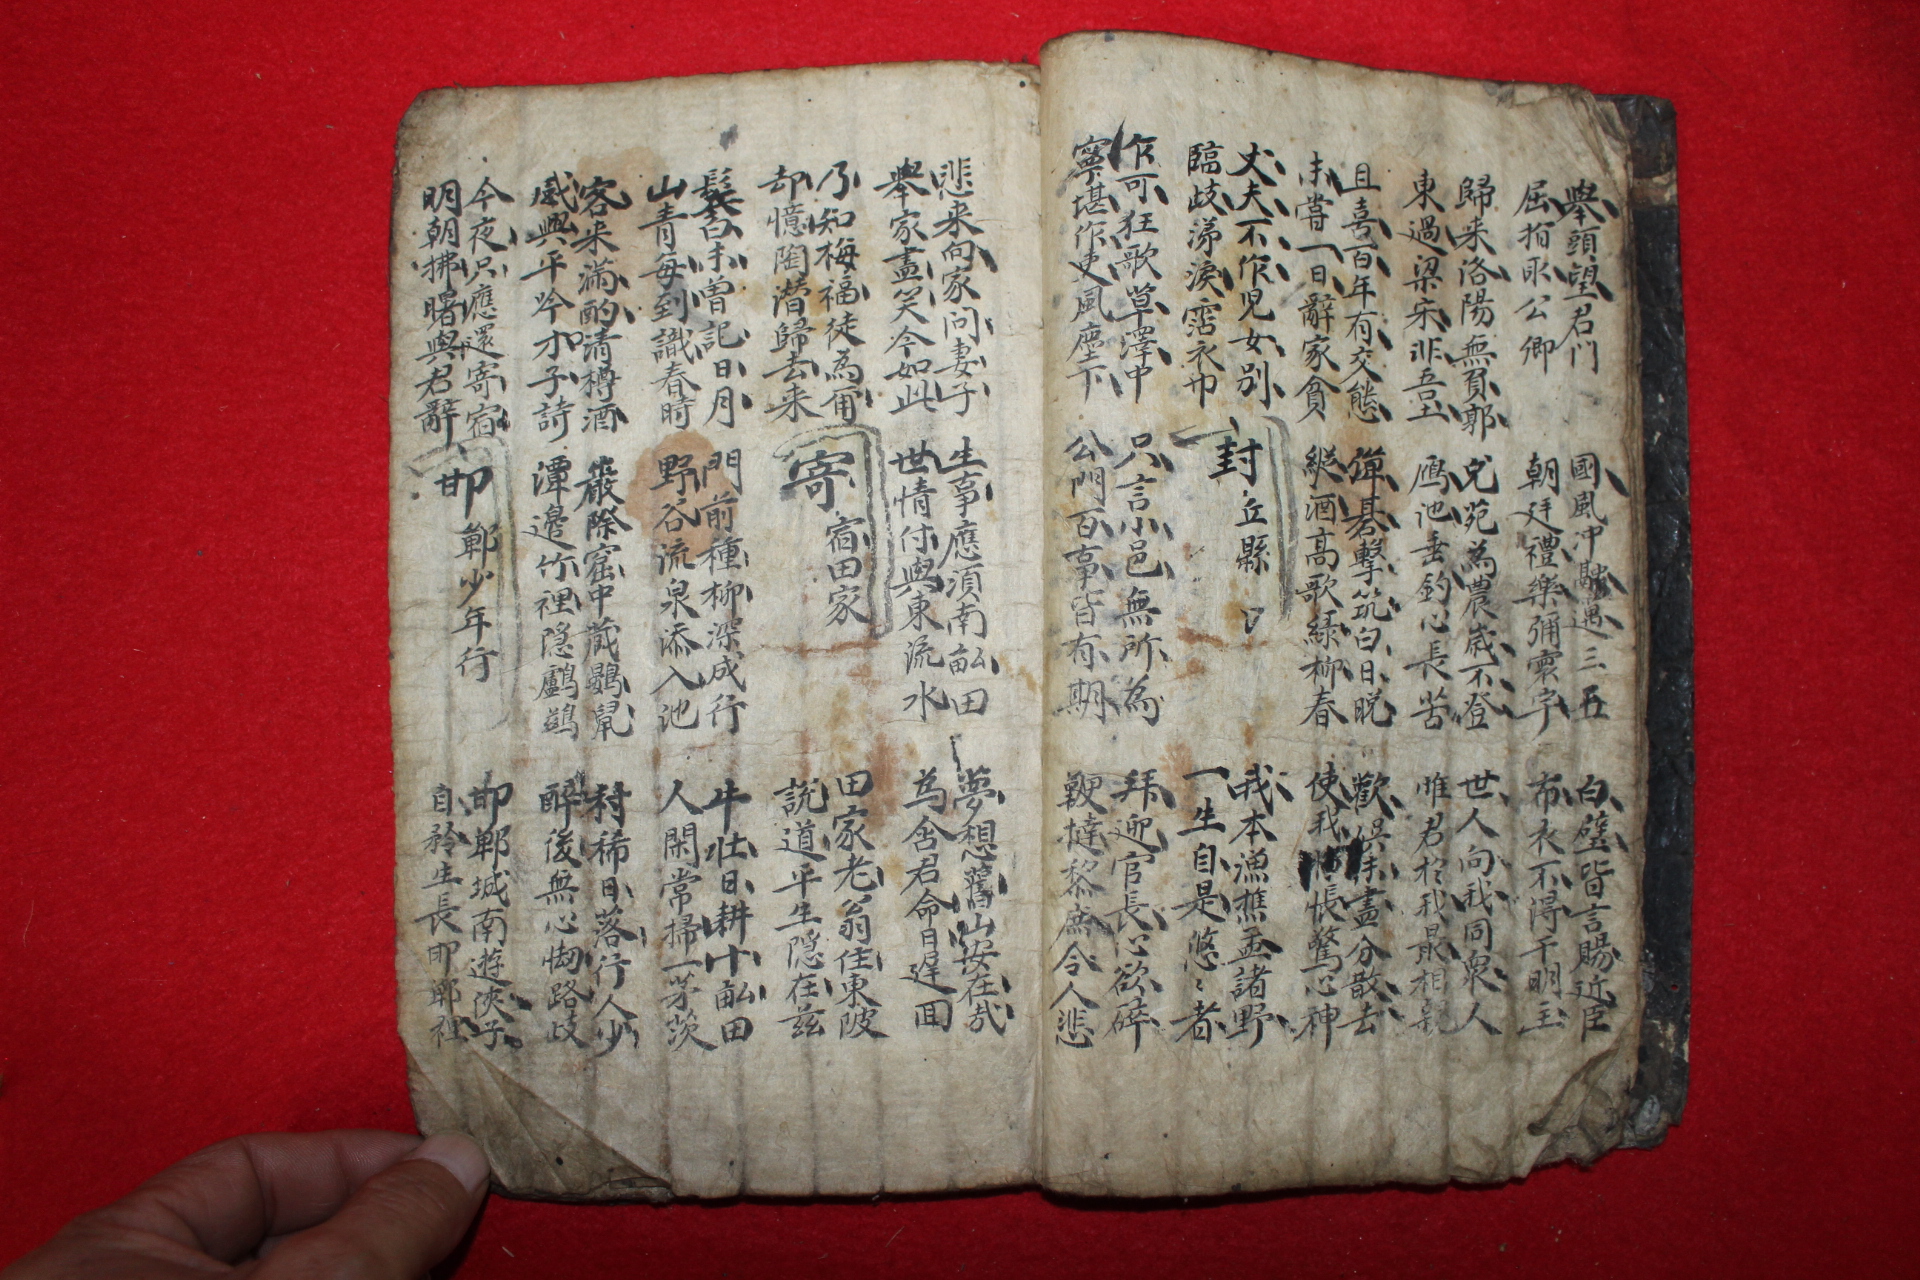 舉頭望君門
屈指取公卿
國風冲融遇三五
朝廷禮樂彌寰宇
白璧皆言賜近臣
布衣不得干明主
歸来洛陽無負郭
東過梁宋非吾土
兎苑為農歲不登
鴈池垂釣心長苦
世人向我同衆人
惟君於我最相親
且喜百年有交態
未嘗一日辭家貧
彈碁擊筑白日晩
縱酒高歌綠柳春
歡娛未盡分散去
使我惆悵驚心神
丈夫不作兒女別
臨歧涕淚霑衣巾
封丘縣
我本漁樵孟諸野
一生自是悠〻者
乍可狂歌草澤中
寧堪作吏風塵下
只言小邑無所為
公門百事皆有期
拜迎官長心欲碎
鞭撻黎庶令人悲
悲来向家問妻子
舉家盡笑今如此
生事應須南畝田
世情付與東流水
夢想舊山安在哉
為含君命日遲囬
乃知梅福徒為甭
却憶陶潜歸去来
寄宿田家
田家老翁住東陂
説道平生隠在茲
鬂白未曽記日月
山青每到識春時
門前種柳深成行
野谷流泉添入池
牛壮日耕十畝田
人閑常掃一茅茨
客来滿酌清樽酒
感興平吟才子詩
巖際窟中藏鼴鼠
潭邉竹裡隠鸕鷀
村稀日落行人少
醉後無心怯路歧
今夜只應還寄宿
明朝拂曙與君辭
邯鄲少年行
邯鄲城南遊俠子
自矜生長邯鄲裡